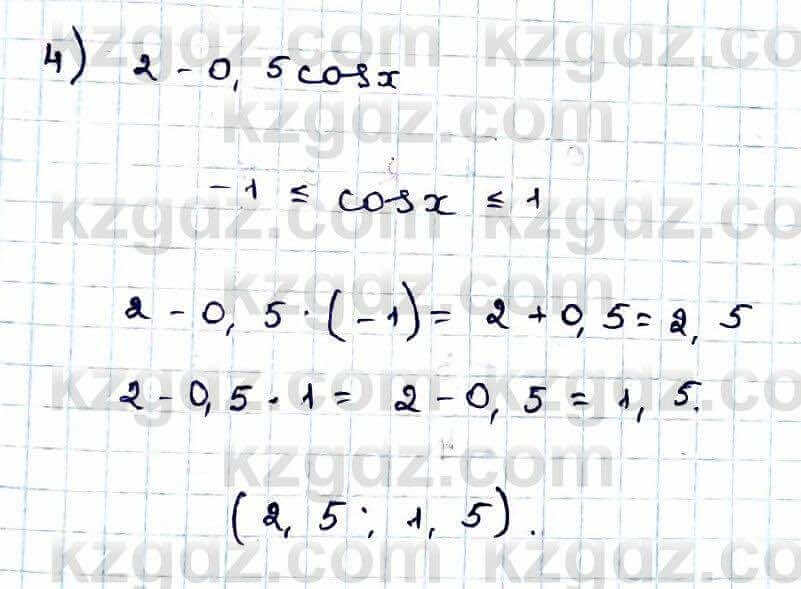 4) 2 - 0,5cosx
-1 ≤ cosx ≤ 1
2 - 0,5·(-1) = 2 + 0,5 = 2,5
2 - 0,5·1 = 2 - 0,5 = 1,5.
(2,5; 1,5).
kzgaz.com kzgaz.com
kzgaz.com
kzgaz.com kzgaz.com
kzgaz.com
kzgaz.com kzgaz.com
kzgaz.com
kzgaz.com kzgaz.com